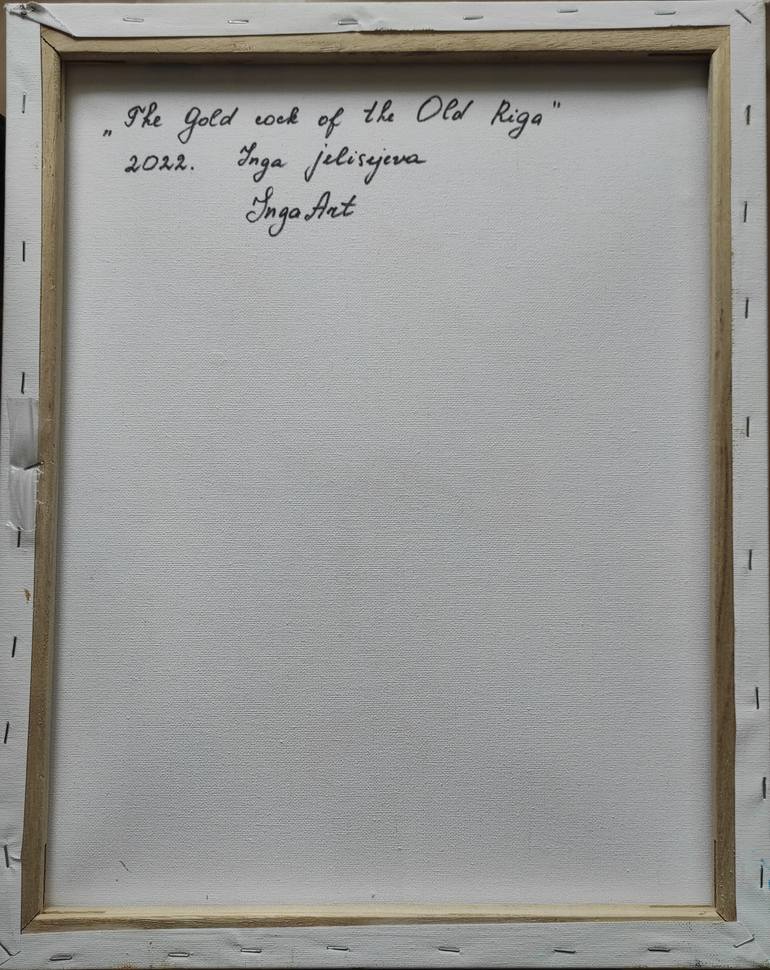 „The gold cock of the Old Riga"
2022. Inga jelisejeva
IngaArt